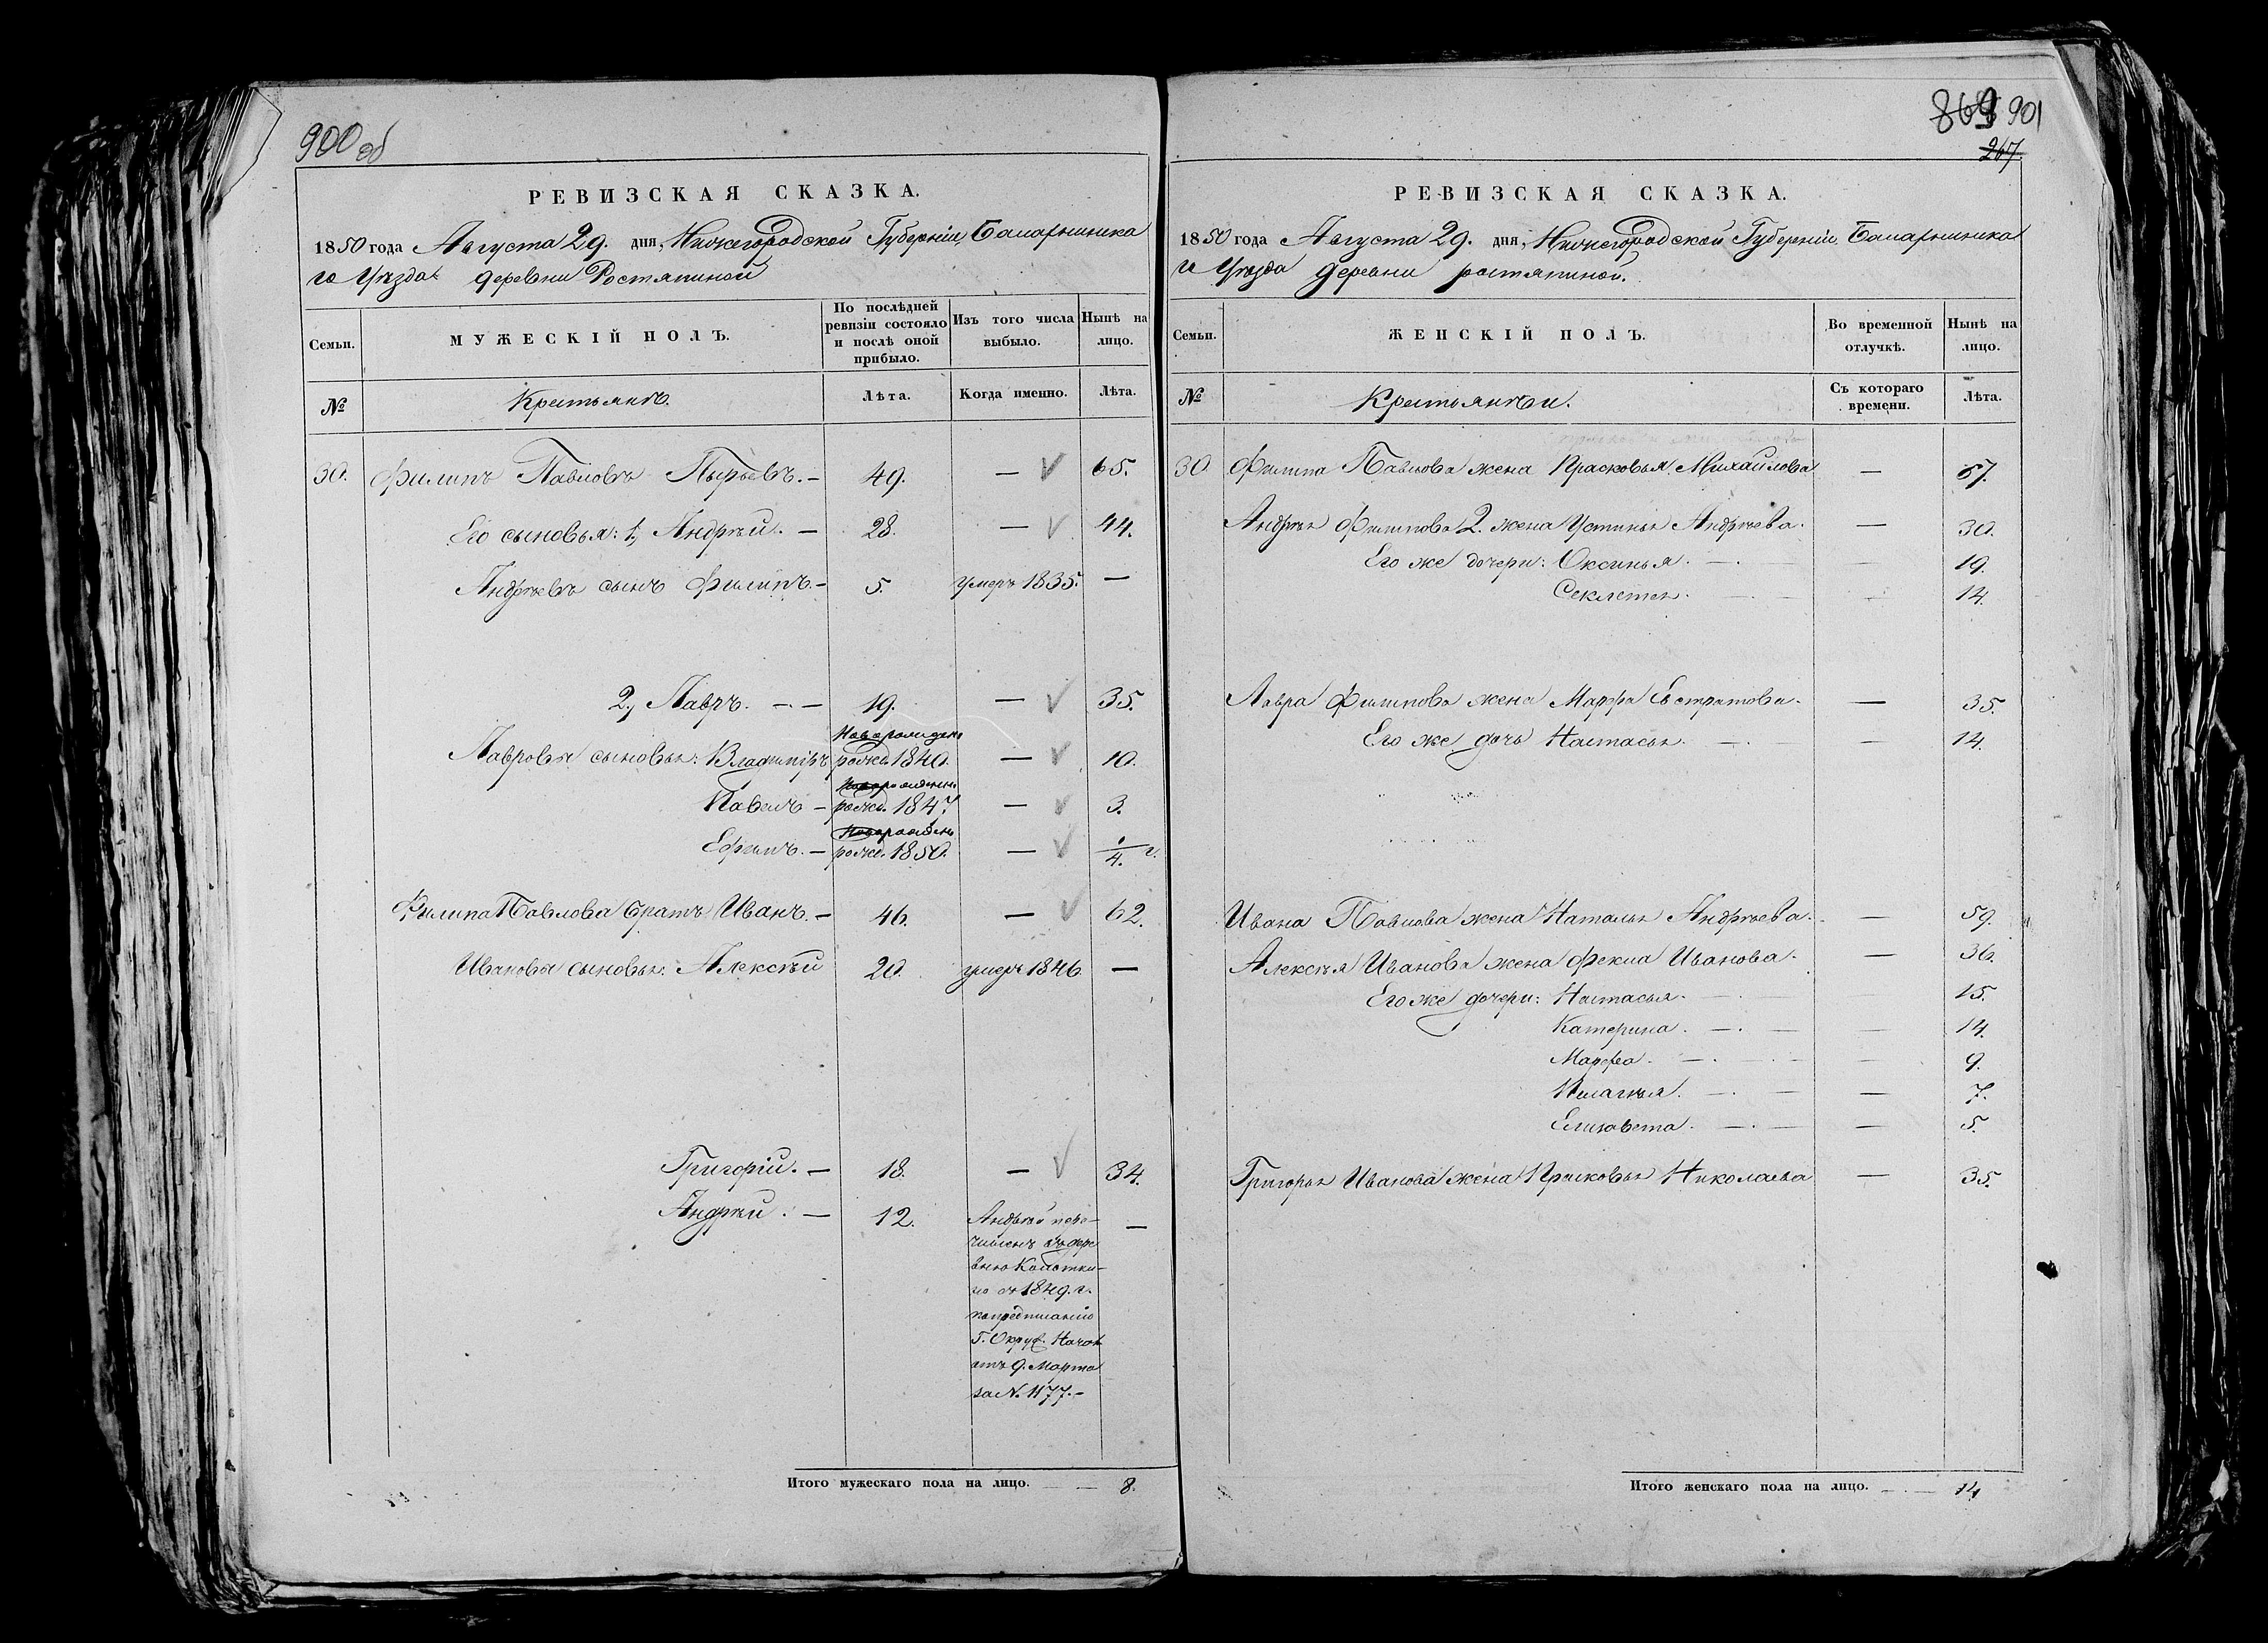 900 об
РЕВИЗСКАЯ СКАЗКА.
1850 года Августа 29. дня, Нижегородской Губерніи, Балахнинска
го Уѣзда деревни Ростяпиной
Семьи.
МУЖЕСКІЙ ПОЛЪ.
По послѣдней ревизіи состояло и послѣ оной прибыло.
Изъ того числа выбыло.
Нынѣ на лицо.
№
Крестьянъ.
Лѣта.
Когда именно.
Лѣта.
30. Филипъ Павловъ Пырьевъ. — 49. — 65.
Его сыновья: 1, Андрѣй. — 28. — 44.
Андрѣевъ сынъ Филипъ. — 5. умеръ 1835. —
2, Лавръ. — — 19. — 35.
Новорожден
Лавровы сыновья: Владимiръ рожд. 1840. — 10.
Новорожден
Павелъ — рожд. 1847 — 3.
Новорожден
Ефимъ. — рожд. 1850. — 1/4. г.
Филипа Павлова братъ Иванъ. — 46. — 62.
Ивановы сыновья: Алексѣй 20. умеръ 1846 —
Григорій. — 18. — 34.
Андрѣй. — 12. Андрѣй пере- —
численъ въ дере
вню Колотки-
но въ 1849. г.
по предписанію
Г. Окруж. Начал
отъ 9. Марта
за N. 1177. —
Итого мужескаго пола на лицо. — — 8.
869 901
267.
РЕВИЗСКАЯ СКАЗКА.
1850 года Августа 29. дня, Нижегородской Губерніи Балахнинска
го Уѣзда деревни ростяпиной.
Семьи.
ЖЕНСКІЙ ПОЛЪ.
Во временной отлучкѣ.
Нынѣ на лицо.
№
Крестьянъ.
Съ котораго времени.
Лѣта.
30. Филипа Павлова жена Прасковья Михайлова — 67.
Андрѣя Филипова 2. жена Устинья Андрѣева. — 30.
Его же дочери: Оксинья. — — 19.
Секлетея. — — 14.
Лавра Филипова жена Марфа Евстратова. — 35.
Его же дочь Настасья. — — 14.
Ивана Павлова жена Наталья Андрѣева. — 59.
Алексѣя Иванова жена Фекла Иванова. — 36.
Его же дочери: Настасья. — 15.
Катерина. — — — 14.
Марфа. — — — 9.
Пилагѣя. — — — 7.
Елизавета. — — — 5.
Григорья Иванова жена Прасковья Николаева — 35.
Итого женскаго пола на лицо. — — 14